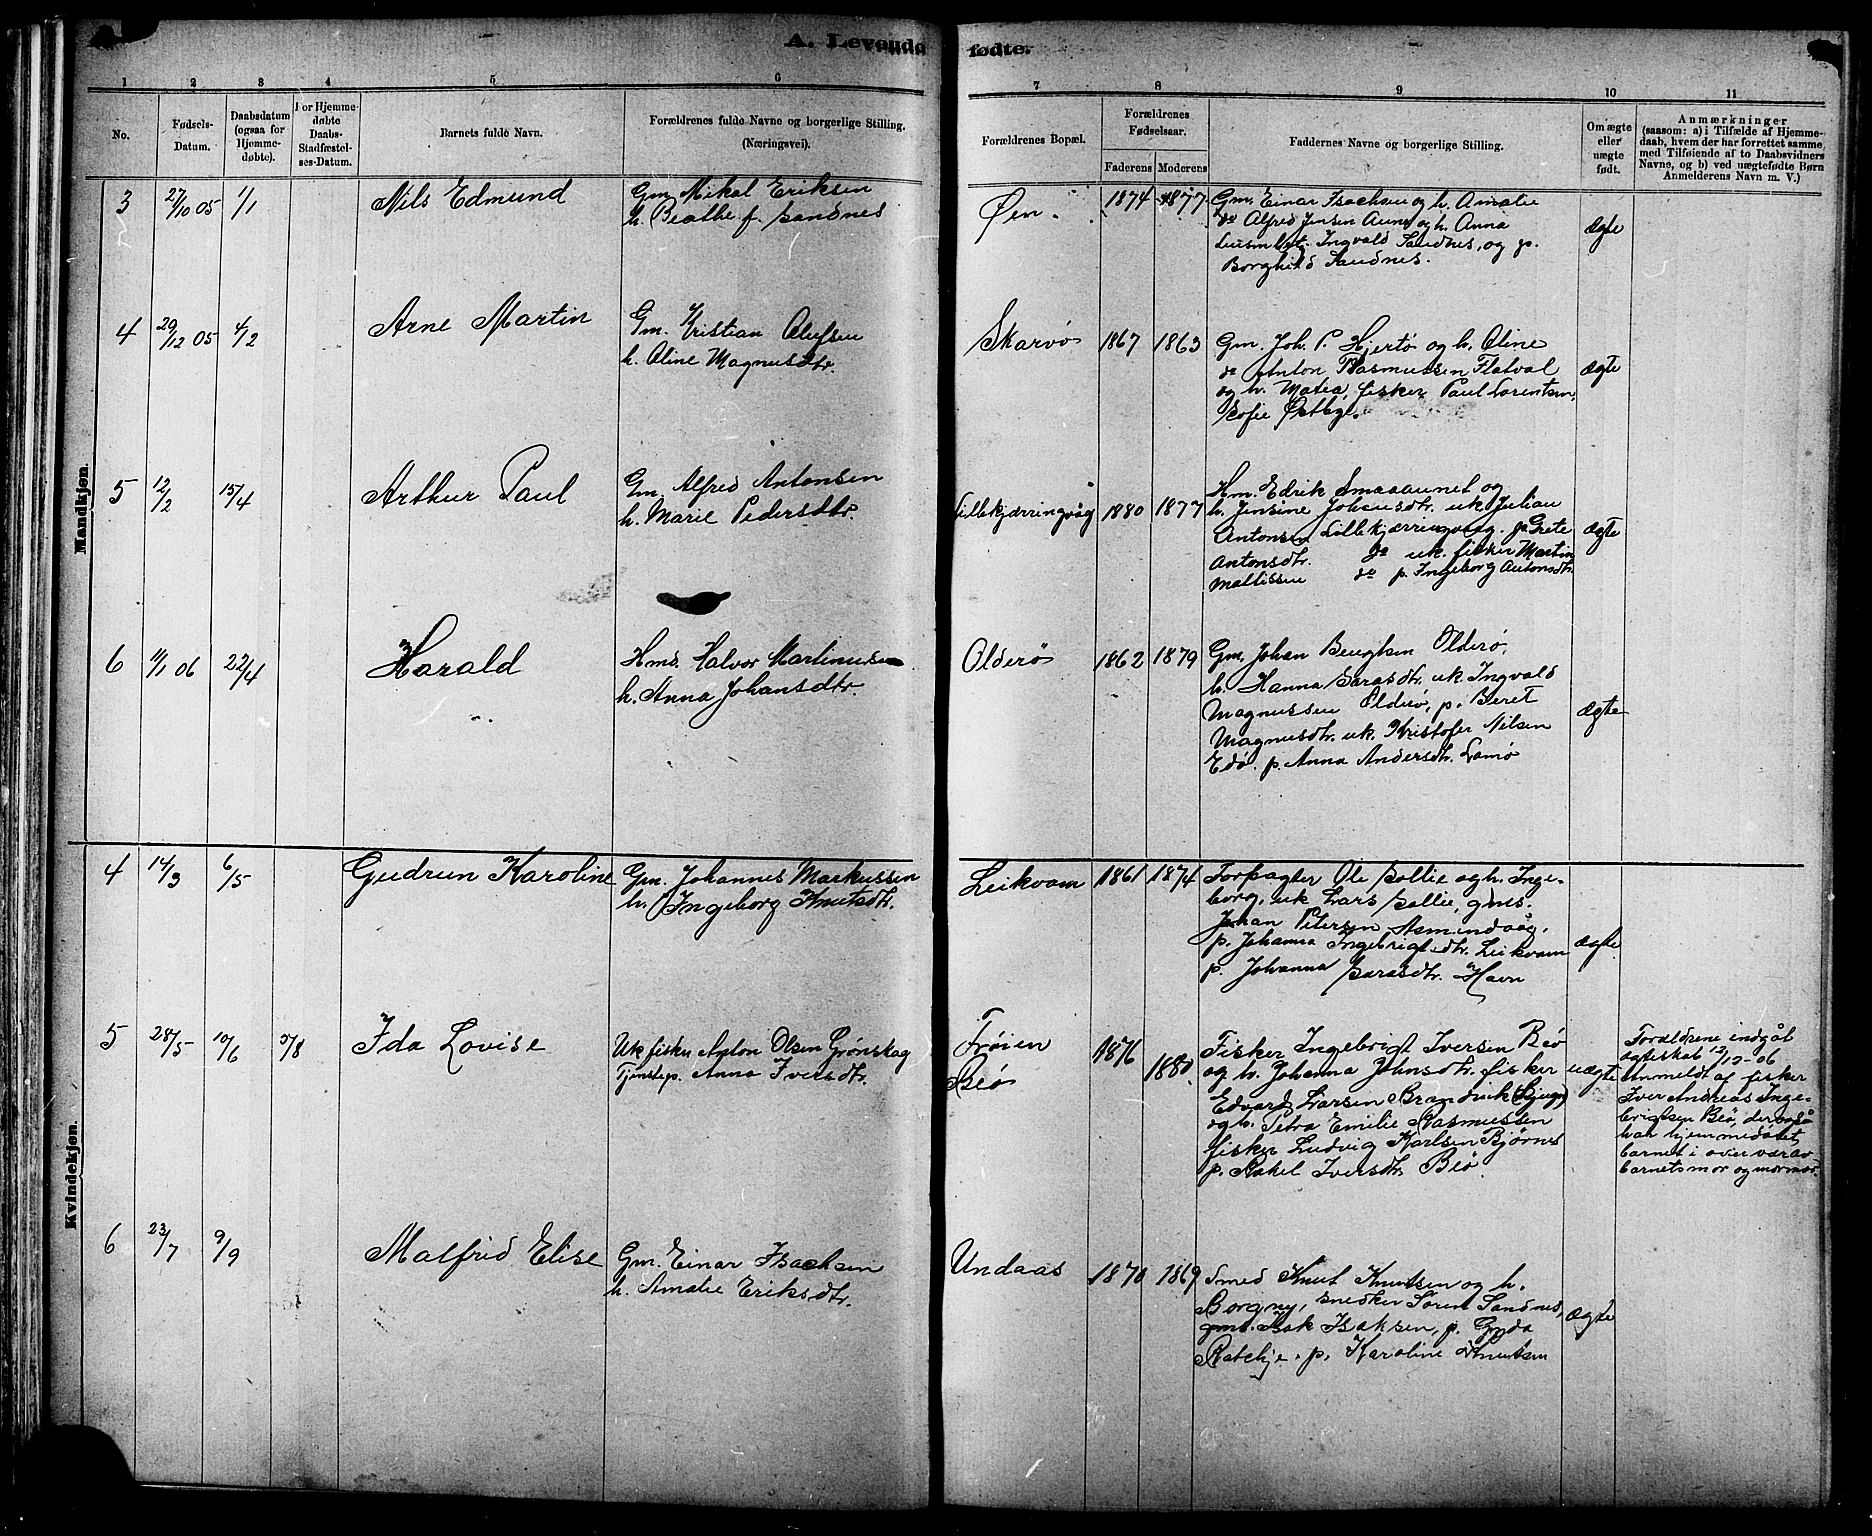 A. Levende fødte.
1 2 3 4 5 6 7 8 9 10 11
No.
Fødsels-
Datum.
Daabsdatum
(ogsaa for
Hjemme-
døbte).
For Hjemme-
døbte
Daabs-
Stadfæstel-
ses-Datum.
Barnets fulde Navn.
Forældrenes fulde Navne og borgerlige Stilling.
(Næringsvei).
Forældrenes Bopæl.
Forældrenes
Fødselsaar.
Faderens Moderens
Faddernes Navne og borgerlige Stilling.
Om ægte
eller
uægte
født.
Anmærkninger
(saasom: a) i Tilfælde af Hjemme-
daab, hvem der har forrettet samme,
med Tilføiende af to Daabsvidners
Navne, og b) ved uægtefødte Børn
Anmelderens Navn m. V.)
Mandkjøn.
3 27/10 05 1/1 Nils Edmund
Gm. Mikal Eriksen
h. Beathe f. Sandnes
Øen. 1874 1877
Gm. Einar Isachsen og h. Amalie
do Alfred Jensen Aune og h. Anna
Ingvald Sandnes, og p.
Borghild Sandnes.
ægte
4 29/12 05 4/2 Arne Martin
Gm. Kristian Olufsen
h. Oline Magnusdtr.
Skarvø 1867 1863
Gm. Joh. P. Hjertø og h. Oline
do Anton Rasmussen Flatval
og h. Matea, fisker Paul Lorentsen,
Sofie Østbye.
ægte
5 12/2 15/4 Arthur Paul
Gm. Alfred Antonsen
h. Marie Pedersdtr.
Lillekjærringvåg 1880 1877
Hm. Edrik Smaaaunet og
h. Jensine Johansdtr. uk. Julian
Antonsen Lillekjærringvaag. p. Grete
Antonsdtr. do uk. fisker Martin
Mattissen do p. Ingeborg Antonsdtr.
ægte
6 11/1 06 22/4 Harald
Hmd. Halvor Martinusen
h. Anna Johansdtr.
Olderø 1862 1879
Gm. Johan Bengtsen Olderø,
h. Hanna Larasdtr. uk Ingvald
Magnussen Olderø, p. Beret
Magnusdtr. uk. Kristofer Nilsen
Edø. p. Anna Andersdtr. Lamø
ægte
Kvindekjøn.
4 14/3 6/5 Gudrun Karoline
Gm. Johannes Markussen
h. Ingeborg Knutsdtr.
Leikvam 1861 1874
Forpagter Ole Sollie og h. Inge-
borg, uk Lars Sollie, gms.
Johan Petersen Asmindvåg,
p. Johanna Ingebrigtsdtr. Leikvam
p. Johanna Larasdtr. Havn
ægte
5 28/5 10/6 5/8 Ida Lovise
Uk fisker Anton Olsen Grønskag
Tjenstep. Anna Iversdtr.
Frøien
Beø
1876 1880.
Fisker Ingebrigt Iversen Beø
og h. Johanna Johnsdtr. fisker
Edvard Larsen Brandvik (Bjugn)
og h. Petra Emilie Rasmussen
fisker Ludvig Karlsen Bjørnes
p. Rakel Iversdtr. Beø
uægte
Forældrene indgåt
ægteskab 12/12-06
Anmeldt af fisker
Iver Andreas Inge-
brigtsen Beø, der også
har hjemmedøbt
barnet i overvær av
barnets mor og mormor.
6 23/7 9/9 Malfrid Elise
Gm. Einar Isachsen
h. Amalie Eriksdtr.
Undaas 1870 1869
Smed Knut Knutsen og h.
Borgny, snedker Søren Sandnes,
gmd. Isak Isaksen, p. Gyda
p. Karoline Knutsen
ægte